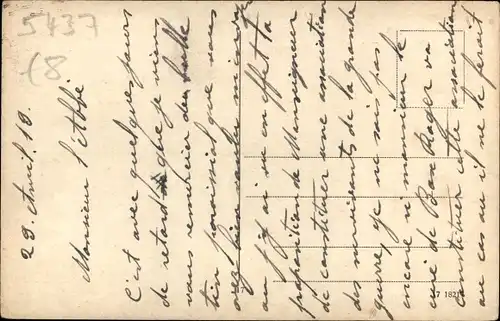 5437
18
23 Avril. 19.
Monsieur l'Abbé
C'est avec quelques jours
de retard que je viens
vous remercier du bulle
tin paroissial que vous
avez bien voulu m'envoy
au j'y ai vu en effet la
proposition de Monseigneur
de constituer une association
des survivants de la grande
guerre, je ne sais pas
encore si monsieur le
curé de Bas Rager va
constituer cette association
au cas au il ne le ferait
7 182